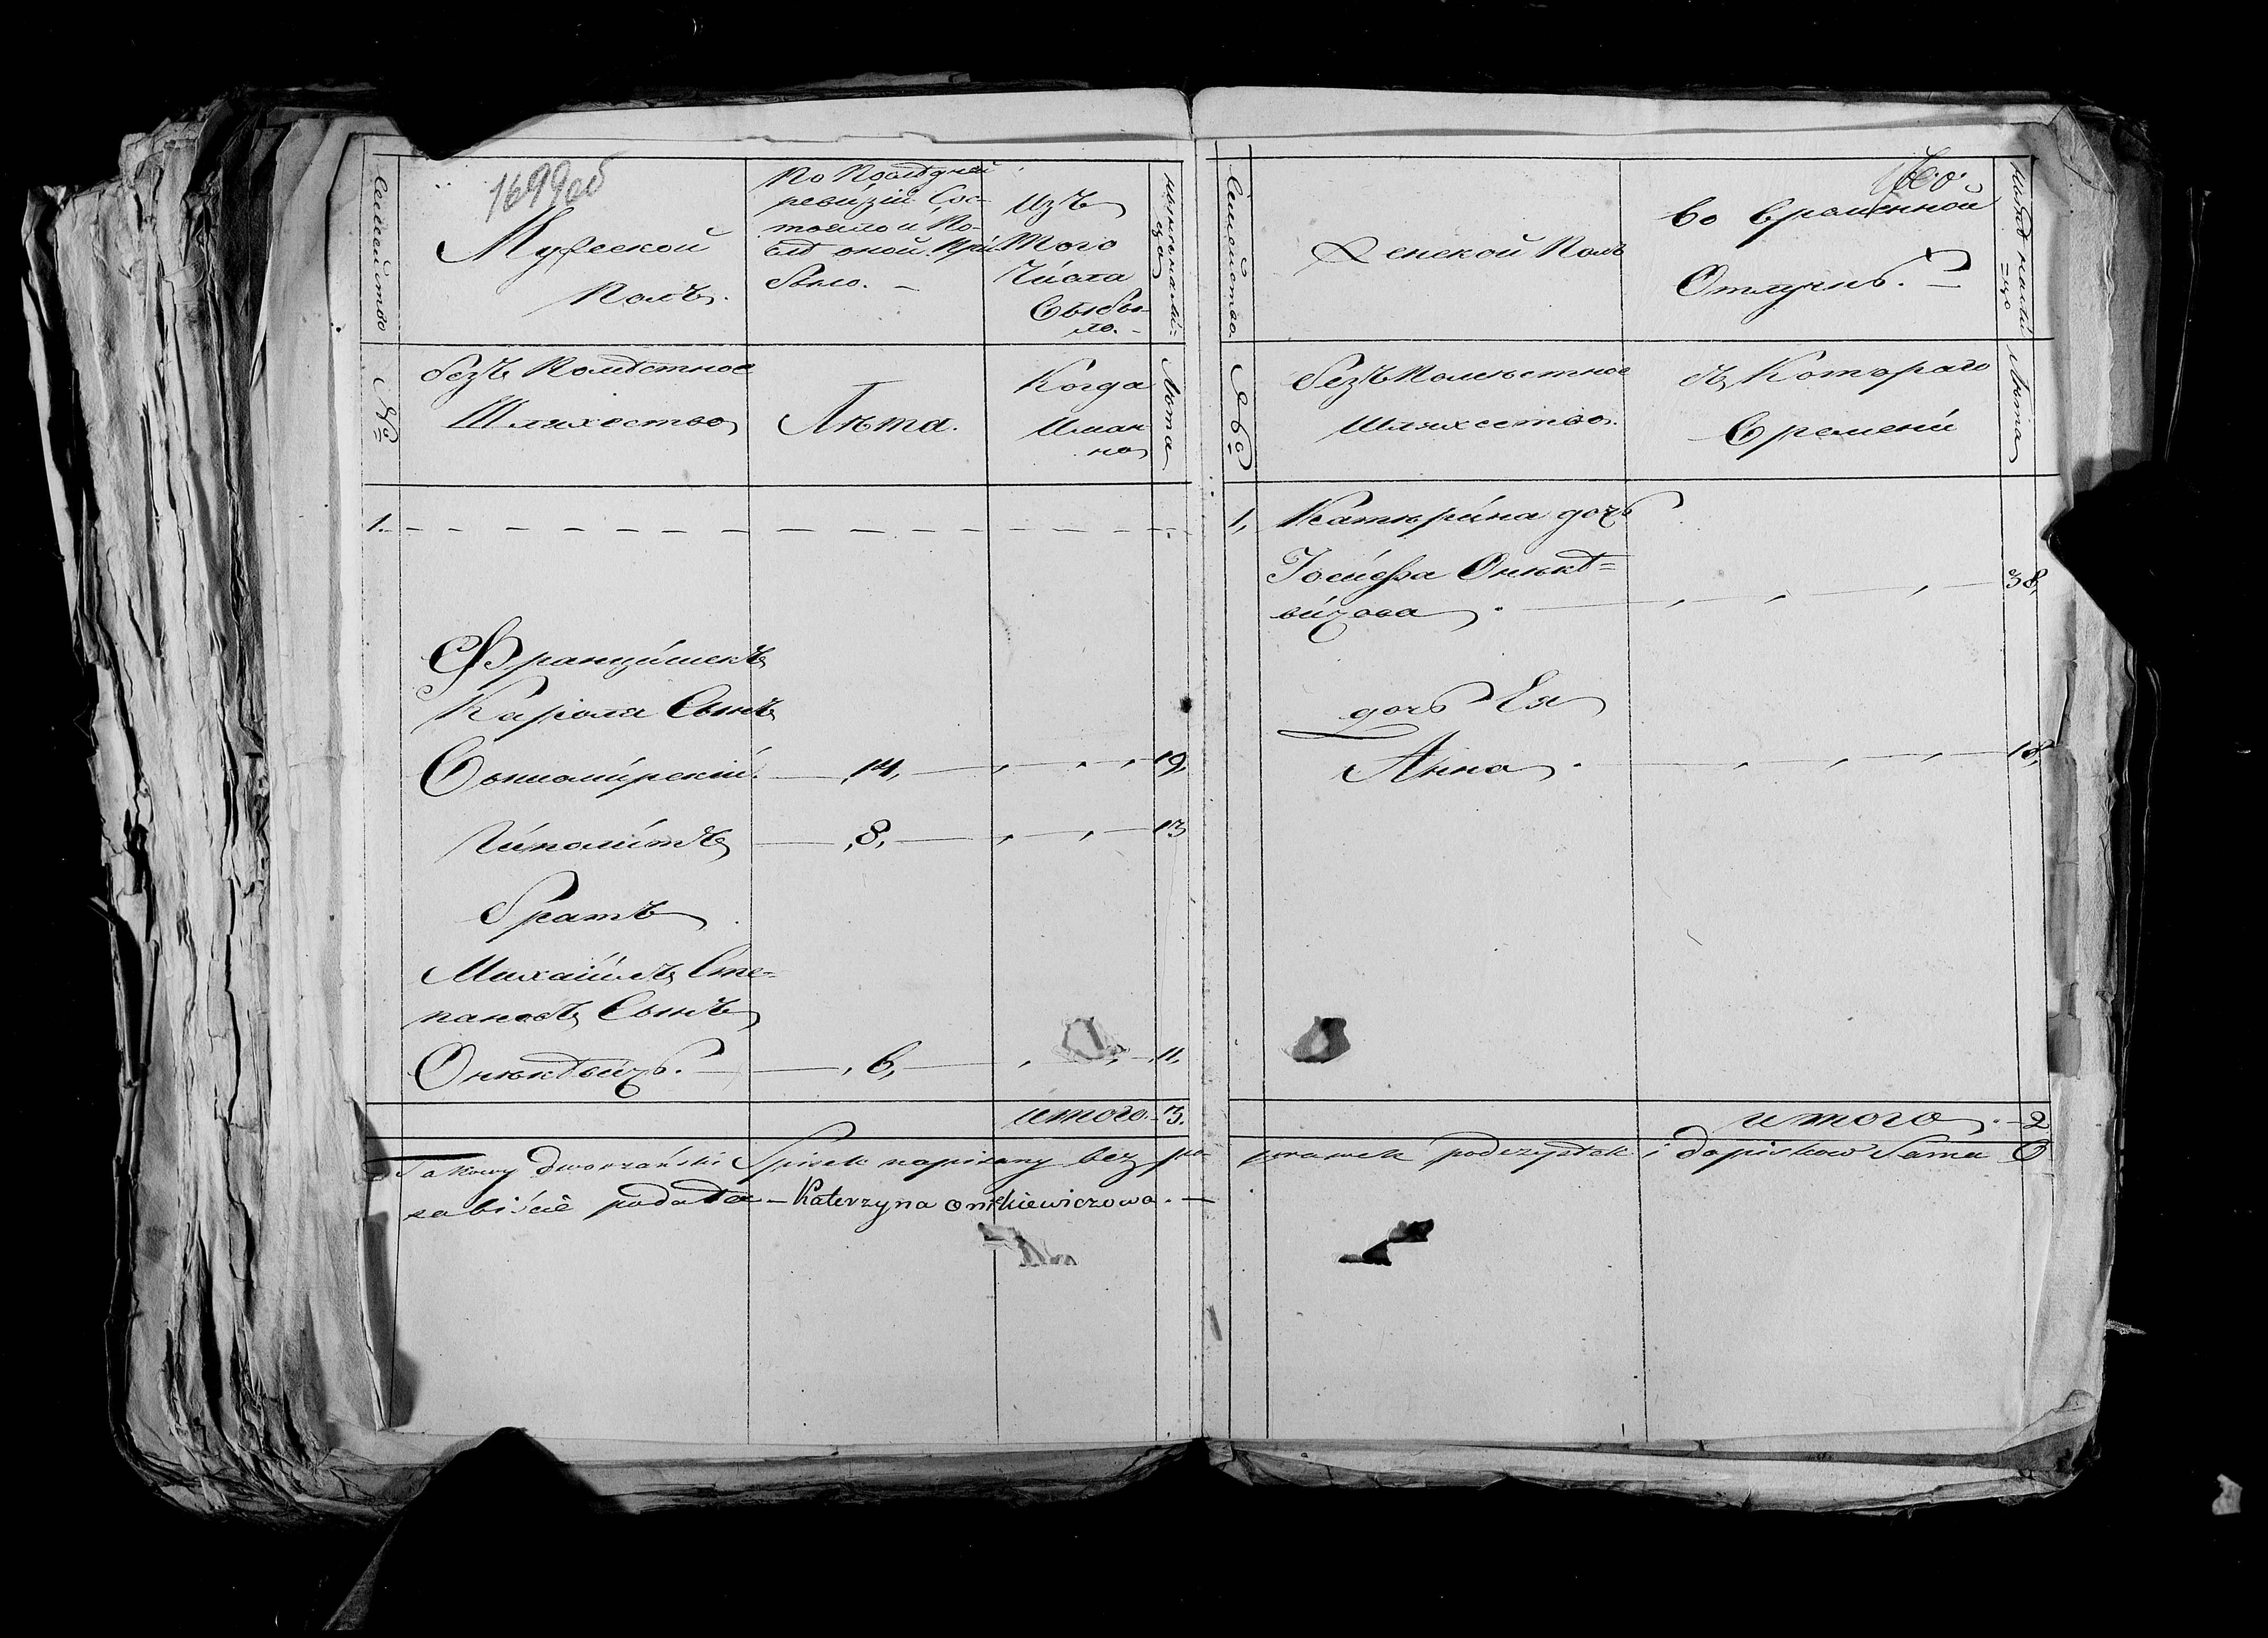 1699об
Семейство
Мужеской
Полъ.
По Послѣдней
ревизіи Сос-
тояло и По-
слѣ оной При
было. -
Изъ
Того
Числа
Выбы-
ло. -
№
безъ Помѣстное
Шляхество
Лѣта.
Когда
Имян
но
Лѣта
1.
Францишекъ
Кароля Сынъ
14, 19,
Гиполитъ 8, 13
братъ
Михаилъ Сте-
пановъ Сынъ
Онѣкѣвичъ. 6, 11,
итого. 3.
Семейство
Женской Полъ
Во временной
Отлучкѣ.
безъ Поместное
Шляхество.
съ Котораго
Времени
Лѣта
1, Катерина дочь
Іосифа Онѣкѣ=
вичова 38,
дочь Ея
Анна 18,
итого. 2
Takowy Dworzański Spisek napisany bez po prawek podczystek i dopisków Sama O
sabiście podała - Katerzyna Onikiewiczowa. -